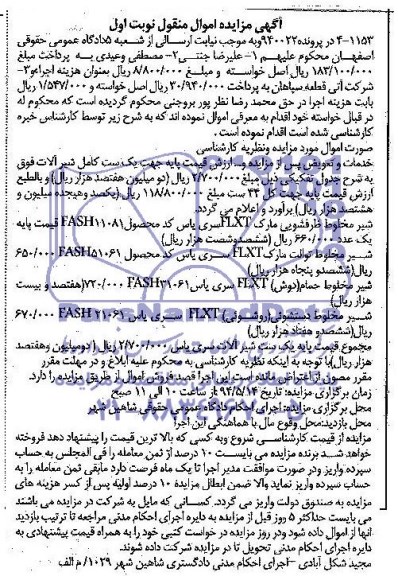 آگهی مزایده اموال منقول نوبت اول
۴-۱۱۵۳ در پرونده۹۴۰۰۲۲وبه موجب نیابت ارسالی از شعبه ۵دادگاه عمومی حقوقی
اصفهان محکوم علیهم ۱-علیرضا جنتی۲- مصطفی وعیدی به پرداخت مبلغ
۱۸۳/۱۰۰/۰۰۰ ریال اصل خواسته و مبلغ ۸/۸۰۰/۰۰۰ ریال بعنوان هزینه اجراء۳-
شرکت آتی قطعه سپاهان به پرداخت ۳۰/۹۴۰/۰۰۰ ریال اصل خواسته و ۱/۵۴۷/۰۰۰ ریال
بابت هزینه اجرا در حق محمد رضا نظر پور بروجنی محکوم گردیده است که محکوم له
در قبال خواسته خود اقدام به معرفی اموال نموده اند که به شرح زیر توسط کارشناس خبره
کارشناسی شده است اقدام نموده است.
صورت اموال مورد مزایده ونظریه کارشناسی
خدمات و تعویض پس از مزایده و ارزش قیمت پایه جهت یک ست کامل شیر آلات فوق
به شرح جدول تفکیکی ذیل مبلغ ۲/۷۰۰/۰۰۰ ریال (دو میلیون هفتصد هزار ریال) و بالطبع
ارزش قیمت پایه جهت کل ۴۴ ست مبلغ ۱۱۸/۸۰۰/۰۰۰ ریال (یکصد وهیجده میلیون و
هشتصد هزار ریال) برآورد و اعلام می گردد.
شیر مخلوط ظرفشویی مارک FLXTسری یاس کد محصول۱۱۰۸۱FASH قیمت پایه
یک عدد ۶۶۰/۰۰۰ ریال (ششصدوشصت هزار ریال)
شیر مخلوط توالت مارکFLXT سری یاس کد محصول ۵۱۰۶۱FASH ۶۵۰/۰۰۰
ریال(ششصدو پنجاه هزار ریال)
شیر مخلوط حمام(توش) FLXT سری یاس۳۱۰۶۱FASH ۷۲۰/۰۰۰(هفتصد و بیست
هزار ریال)
شیر مخلوط دستشوئی(روشوئی) FLXT سری یاس ۲۱۰۶۱ FASH ۶۷۰/۰۰۰
ریال(ششصدو هفتاد هزار ریال)
مجموع قیمت پایه یک ست شیر آلات سری یاس ۲/۷۰۰/۰۰۰ ریال (دومیلیون وهفتصد
هزار ریال)با توجه به اینکه نظریه کارشناسی به محکوم علیه ابلاغ و در مهلت مقرر
مقرر مصون از اعتراض مانده است این اجرا قصد فروش اموال از طریق مزایده را دارد.
زمان برگزاری مزایده: تاریخ ۹۴/۵/۱۴ از ساعت ۱۰ الی ۱۱ صبح
محل برگزاری مزایده: اجرای احکام دادگاه عمومی حقوقی شاهین شهر
محل بازدید:محل وقوع مال با هماهنگی این اجرا
مزایده از قیمت کارشناسی شروع وبه کسی که بالا ترین قیمت را پیشنهاد دهد فروخته
خواهد شد برنده مزایده می بایست ۱۰ درصد از ثمن معامله را فی المجلس به حساب
سپرده واریز ودر صورت موافقت مدیر اجرا تا یک ماه فرصت دارد مابقی ثمن معامله را به
حساب سپرده واریز نماید والا ضمن ابطال مزایده ۱۰ درصد اولیه پس از کسر هزینه های
مزایده به صندوق دولت واریز می گردد. کسانی که مایل به شرکت در مزایده می باشند
می بایست حداکثر ۵ روز قبل از مزایده به دایره اجرای احکام مدنی مراجعه تا ترتیب بازدید
آنها از اموال داده شود ودر روز مزایده در خواست کتبی خود را به همراه قیمت پیشنهادی به
دایره اجرای احکام مدنی تحویل تا در مزایده شرکت داده شوند.
مجید شکل آبادی -اجرای احکام مدنی دادگستری شاهین شهر ۱۰۲۹/ م الف